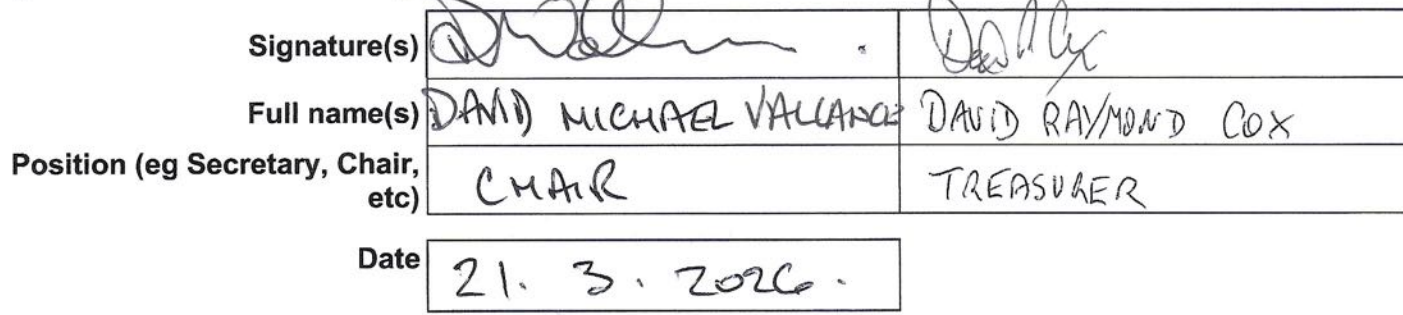 Signature(s)
Full name(s) DAVID MICHAEL VALLANCE DAVID RAYMOND COX
Position (eg Secretary, Chair,
etc) CHAIR TREASURER
Date 21. 3. 2026.